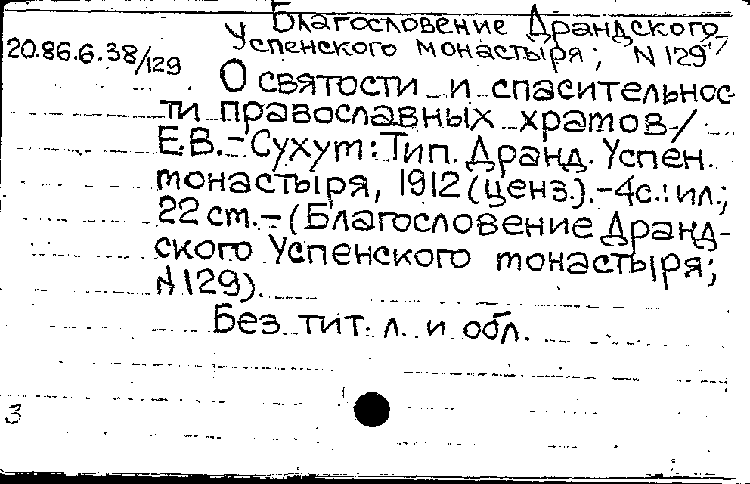 Благословение Драндского
Успенского монастыря; N 129
20.86.6.38/129
О святости и спасительнос-
ти православных храмов /
Е.В. – Сухум: Тип. Дранд. Успен.
монастыря, 1912 (ценз.). – 4с.: ил.;
22 cm. – (Благословение Дранд-
ского Успенского монастыря;
N 129).
Без тит. л. и обл.
3